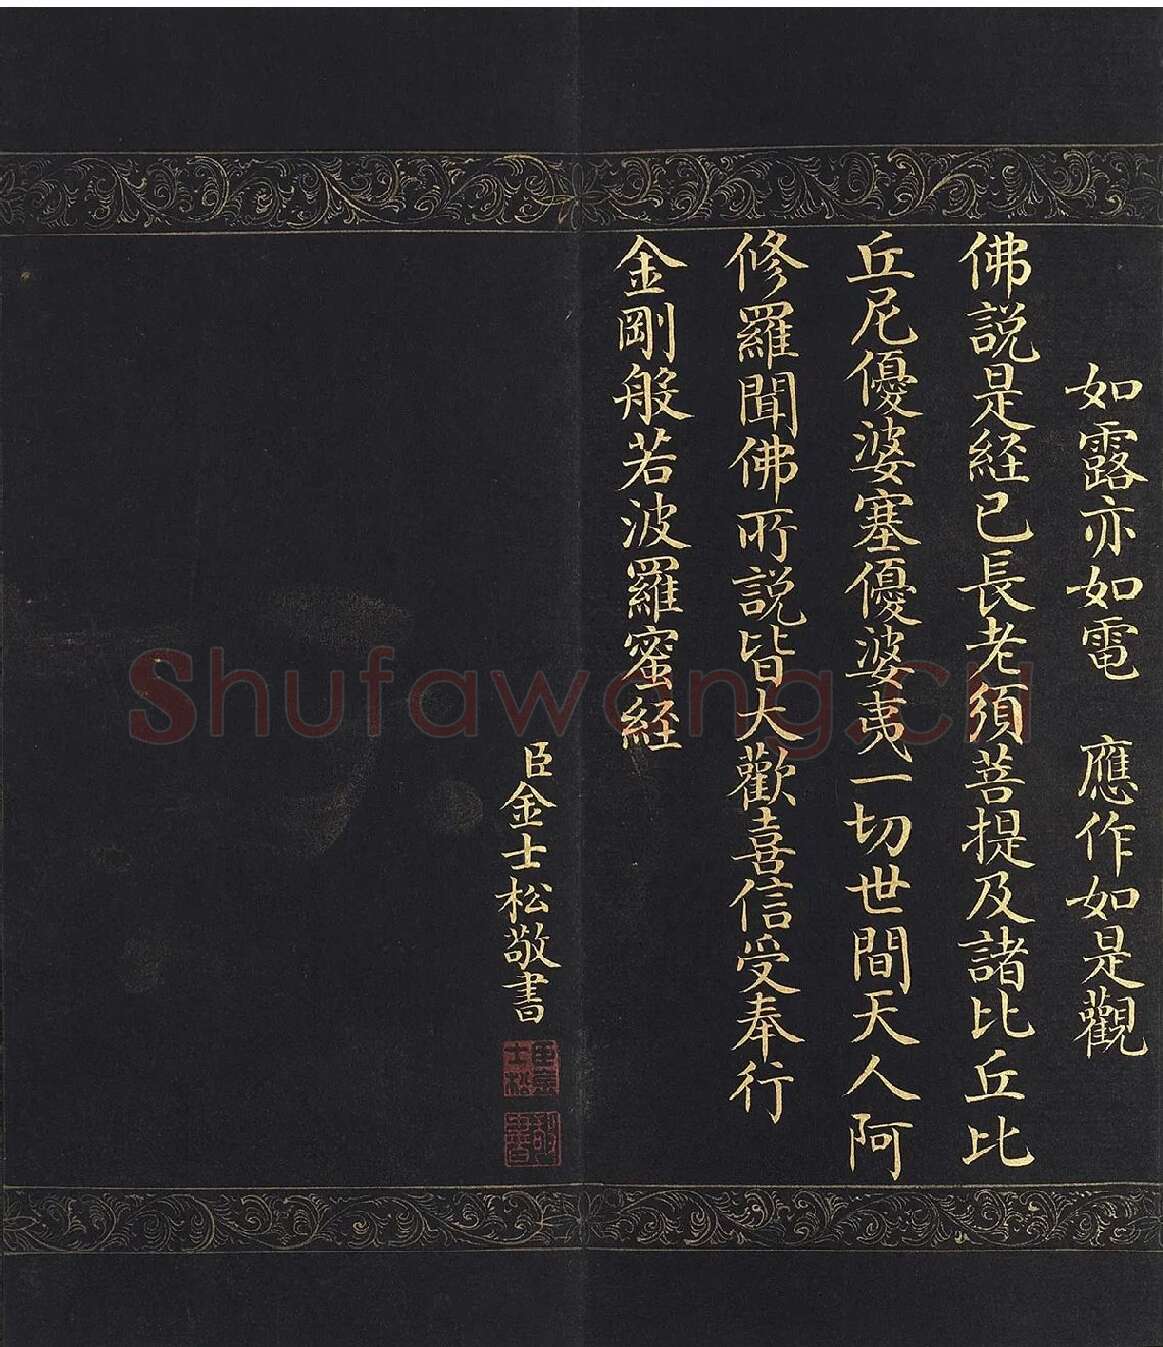 如露亦如電　應作如是觀
佛説是経已長老須菩提及諸比丘比
丘尼優婆塞優婆夷一切世間天人阿
修羅聞佛所説皆大歡喜信受奉行
金剛般若波羅蜜経
臣金士松敬書
臣金士松
Shufawang.cn